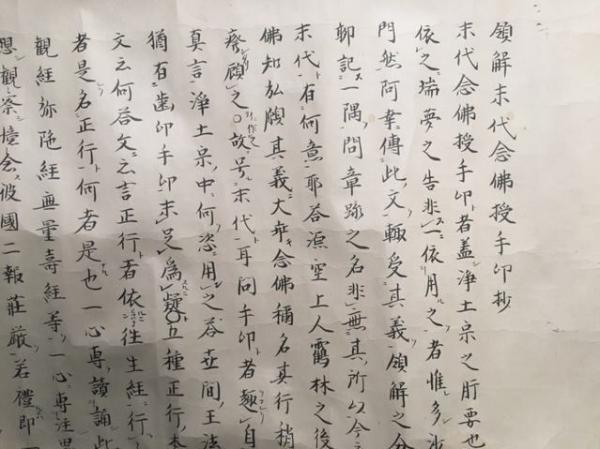 領解末代念佛授手印抄
末代念佛授手印者蓋淨土宗之肝要也
依之瑞夢之告非一依用之者惟多
門然阿輩傳此文輙受其義領解之分
聊記一隅問章跡之名非無其所以今
末代有何意耶答源空上人鶴林之後
佛知弘願其義大亦念佛稱名其行稍
廢顧之故号末代耳問手印者
真言淨土宗中何恣用之答世間王法
猶有齒印手印未足為疑五種正行
文云何答文云言正行者依往生經行
者是名正行何者是也一心專讀誦此
觀經弥陁經無量壽經等一心專注
想觀察憶念彼國二報莊嚴若禮即